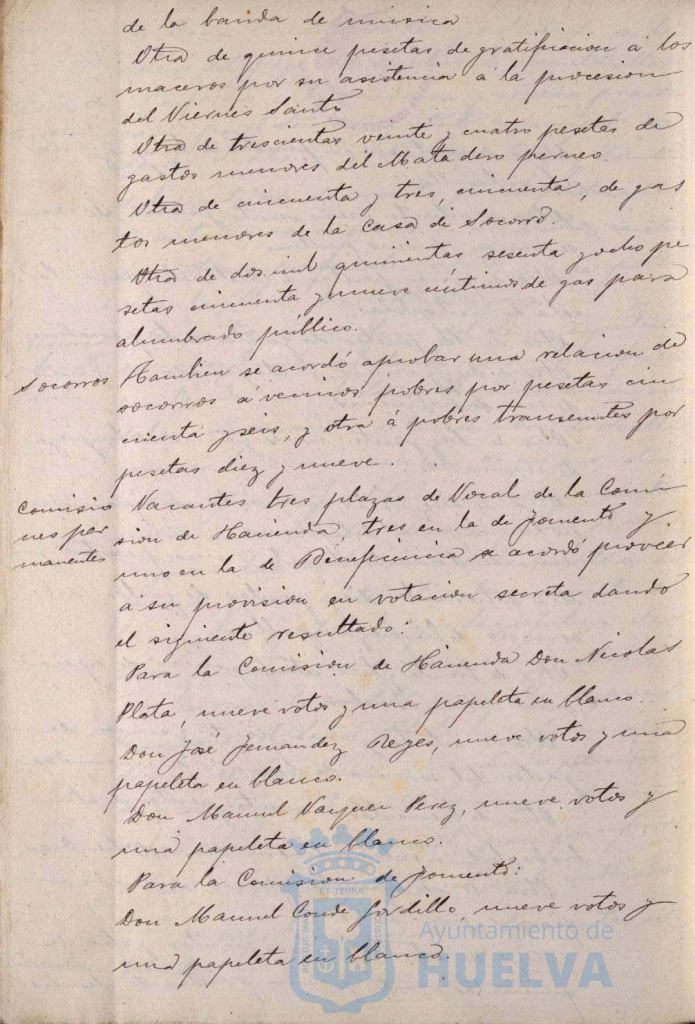 de la banda de música
Otra de quince pesetas de gratificacion á los
maceros por su asistencia á la procesion
del Viernes Santo
Otra de trescientas veinte y cuatro pesetas de
gastos menores del Matadero perneo.
Otra de cincuenta y tres, cincuenta, de gas
tos menores de la Casa de Socorro.
Otra de dos mil quinientas sesenta y ocho pe
setas cincuenta y nueve céntimos de gas para
alumbrado público.
Socorros
Tambien se acordó aprobar una relacion de
socorros á vecinos pobres por pesetas cin
cuenta y seis, y otra á pobres transeuntes por
pesetas diez y nueve.
Comisio
nes per
manentes
Vacantes tres plazas de Vocal de la Comi
sion de Hacienda, tres en la de Fomento y
uno en la de Beneficencia se acordó proveer
á su provision en votacion secreta dando
el siguiente resultado:
Para la Comision de Hacienda Don Nicolas
Plata, nueve votos y una papeleta en blanco.
Don José Fernandez Reyes, nueve votos y una
papeleta en blanco.
Don Manuel Vazquez Perez, nueve votos y
una papeleta en blanco.
Para la Comision de Fomento:
Don Manuel Conde Gordillo, nueve votos y
una papeleta en blanco.
Ayuntamiento de
HUELVA